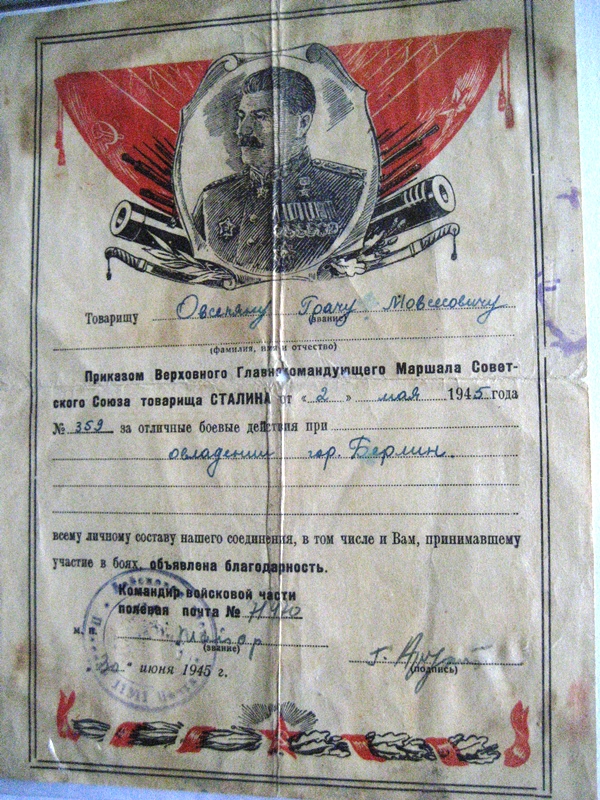 Товарищу Овсепяну Грачу Мовсесовичу
(звание)
(фамилия, имя и отчество)
Приказом Верховного Главнокомандующего Маршала Совет-
ского Союза товарища СТАЛИНА от « 2 » мая 1945 года
№ 359 за отличные боевые действия при
овладении гор. Берлин.
всему личному составу нашего соединения, в том числе и Вам, принимавшему
участие в боях, объявлена благодарность.
Командир войсковой части
полевая почта №
м. п. майор
(звание)
(подпись)
июня 1945 г.